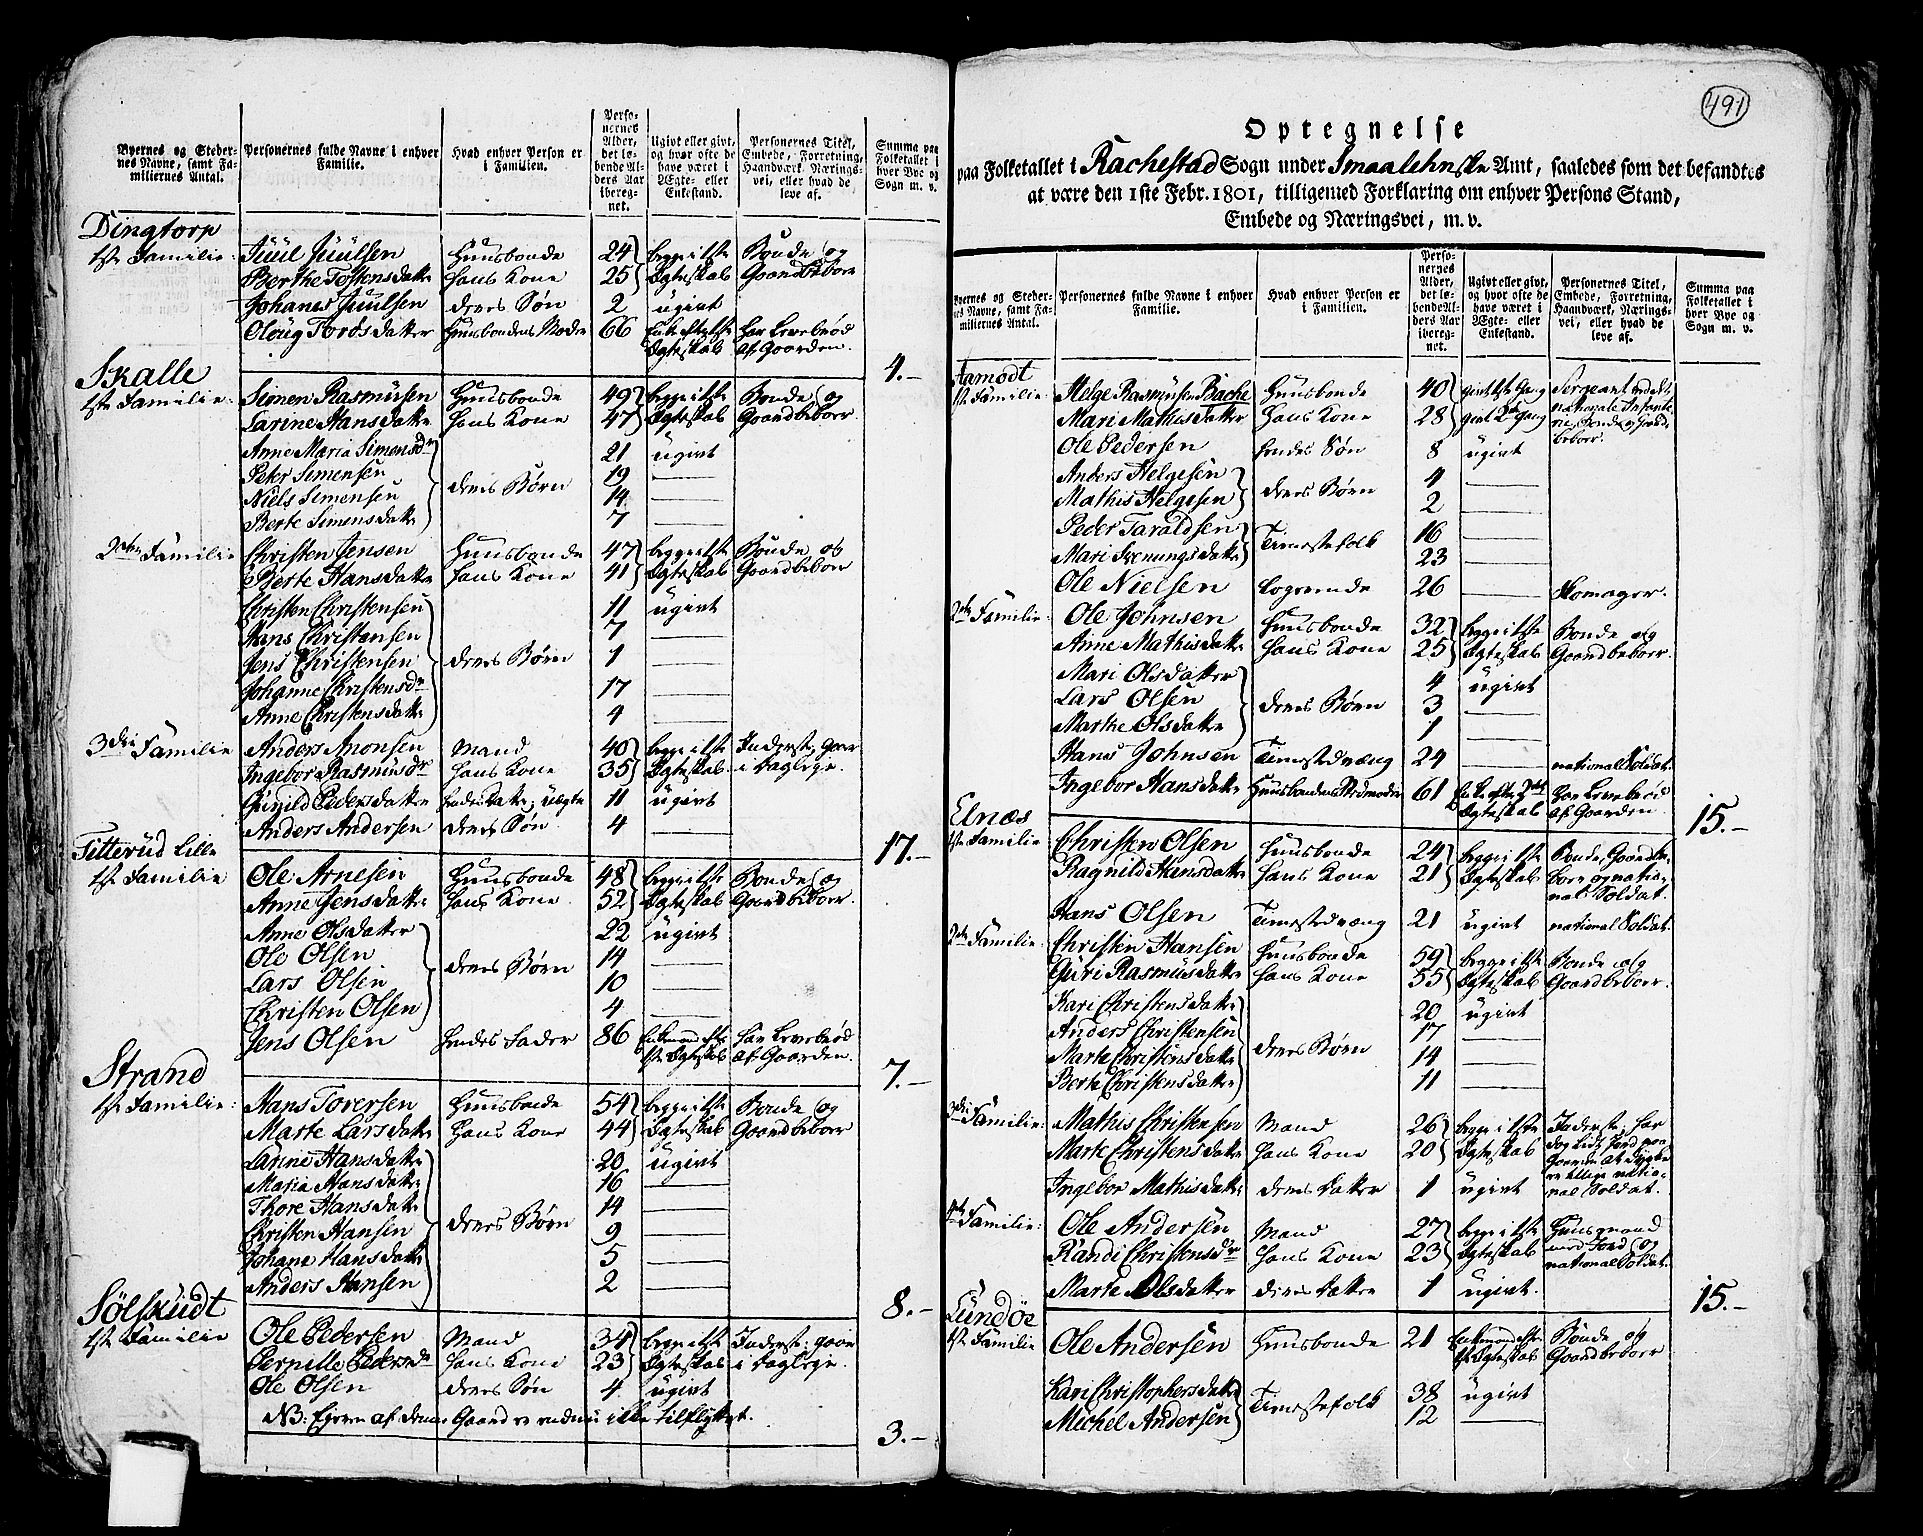 Byernes og Steder-
nes Navne, samt Fa-
miliernes Antal.
Personernes fulde Navne i enhver
Familie.
Hvad enhver Person er
i Familien.
Perso-
nernes
Alder,
det lø-
bende Al-
ders Aar
iberegnet.
Ugivt eller givt,
og hvor ofte de
have været i
Ægte- eller
Enkestand.
Personernes Titel,
Embede, Forretning,
Haandværk, Nærings-
vei, eller hvad de
leve af.
Summa paa
Folketallet i
hver Bye og
Sogn m. v.
Dingtorp
1ste Familie: Juul Juulsen Huusbonde 24 begge i 1ste Bonde og
Berthe Tostensdatter hans Kone 25 Ægteskab Gaardbeboer
Johanes Juulsen deres Søn 2 ugivt
Oloug Tordsdatter Huusbondens Moder 66 Enke efter 1ste har Levebrød
Ægteskab af Gaarden. 4.-
Skalle
1ste Familie: Simen Rasmusen Huusbonde 49 begge i 1ste Bonde og
Karine Hansdatter hans Kone 47 Ægteskab Gaardbeboer
Anne Maria Simensdr 21 ugivt
Peter Simensen 19
Niels Simensen deres Børn 14
Berte Simensdatter 7
2den Familie Christen Jensen Huusbonde 47 begge i 1ste Bonde og
Berte Hansdatter hans Kone 41 Ægteskab Gaardbeboer
Christen Christensen 11 ugivt
Hans Christensen 7
Jens Christensen deres Børn 1
Johanne Christensdr 17
Anne Christensdatter 4
3die Familie Anders Monsen Mand 40 begge i 1ste Inderste, gaar
Ingebor Rasmusdr hans Kone 35 Ægteskab. i Dagleje.
Gunild Pedersdatter hendes Datter, uægte 11 ugivt
Anders Andersen deres Søn 4 17.-
Titterud Lille
1ste Familie Ole Arnesen Huusbonde 48 begge i 1ste Bonde og
Anne Jensdatter hans Kone 52 Ægteskab Gaardbeboer.
Anne Olsdatter 22 ugivt
Ole Olsen 14
Lars Olsen deres Børn 10
Christen Olsen 4
Jens Olsen hendes Fader 86 Enkemand efter har Levebrød
1ste Ægteskab af Gaarden. 7.-
Strand
1ste Familie: Hans Torersen Huusbonde 54 begge i 1ste Bonde og
Marte Larsdatter hans Kone 44 Ægteskab Gaardbeboer
Karine Hansdatter 20 ugivt
Maria Hansdatter 16
Thore Hansdatter 14
Christen Hansen deres Børn 9
Johane Hansdatter 5
Anders Hansen 2 8.-
Sølskudt
1ste Familie Ole Pedersen Mand 34 begge i 1ste Inderste, gaar
Pernille Pedersdr hans Kone 23 Ægteskab i Dagleje.
Ole Olsen deres Søn 4 ugivt
NB: Ejeren af denne Gaard er endnu ikke tilflyttet. 3.-
491
Optegnelse
paa Folketallet i Rachestad Sogn under Smaalehnske Amt, saaledes som det befandtes
at være den 1ste Febr. 1801, tilligemed Forklaring om enhver Persons Stand,
Embede og Næringsvei, m. v.
Byernes og Steder-
nes Navne, samt Fa-
miliernes Antal.
Personernes fulde Navne i enhver
Familie.
Hvad enhver Person er
i Familien.
Perso-
nernes
Alder,
det lø-
bende Al-
ders Aar
ibereg-
net.
Ugivt eller givt,
og hvor ofte de
have været i
Ægte- eller
Enkestand.
Personernes Titel,
Embede, Forretning,
Haandværk, Nærings-
vei, eller hvad de
leve af.
Summa paa
Folketallet i
hver Bye og
Sogn m. v.
Aamodt
1ste Familie Helge Rasmusen Bache Huusbonde 40 givt 1ste Gang Sergeant ved det
Mari Mathisdatter hans Kone 28 givt 2den Gang nationale Infante-
rie, Bonde og Gaard-
beboer.
Ole Pedersen hendes Søn 8 ugivt
Anders Helgesen 4
Mathis Helgesen deres Børn 2
Peder Taraldsen Tienestefolk 16
Mari Svenungsdatter 23
Ole Nielsen Logerende 26 Skomager.
2den Familie: Ole Johnsen Huusbonde 32 begge i 1ste Bonde og
Anne Mathisdatter hans Kone 25 Ægteskab Gaardbeboer.
Mari Olsdatter 4 ugivt
Lars Olsen deres Børn 3
Marthe Olsdatter 1
Hans Johnsen Tienestedreng 24 national Soldat.
Ingebor Hansdatter Huusbondens Stedmoder 61 Enke efter 2det har Levebrød
Ægteskab af Gaarden. 15.-
Elnæs
1ste Familie Christen Olsen Huusbonde 24 begge i 1ste Bonde, Gaardbe-
Ragnild Hansdatter hans Kone 21 Ægteskab boer og natio-
nal Soldat.
Hans Olsen Tienestedreng 21 ugivt national Soldat.
2den Familie: Christen Hansen Huusbonde 59 begge i 1ste Bonde og
Guri Rasmusdatter hans Kone 55 Ægteskab Gaardbeboer.
Kari Christensdatter 20 ugivt
Anders Christensen 17
Marte Christensdatter deres Børn 14
Berte Christensdatter 11
3die Familie: Mathis Christensen Mand 26 begge i 1ste Inderste, har
Marte Christensdatter hans Kone 20 Ægteskab dog lidt Jord
Gaarden at dyrke
er tillige natio-
Ingebor Mathisdatter deres Datter 1 ugivt nal Soldat.
4de Familie: Ole Andersen Mand 27 begge i 1ste Huusmand
Randi Christensdr hans Kone 23 Ægteskab med Jord og
national Soldat.
Marte Olsdatter deres Datter 1 ugivt. 15.-
Lundør
1ste Familie Ole Andersen Huusbonde 21 Enkemand efter Bonde og
1ste Ægteskab Gaardbeboer
Kari Christophersdatter Tienestefolk 38 ugivt
Michel Andersen 12